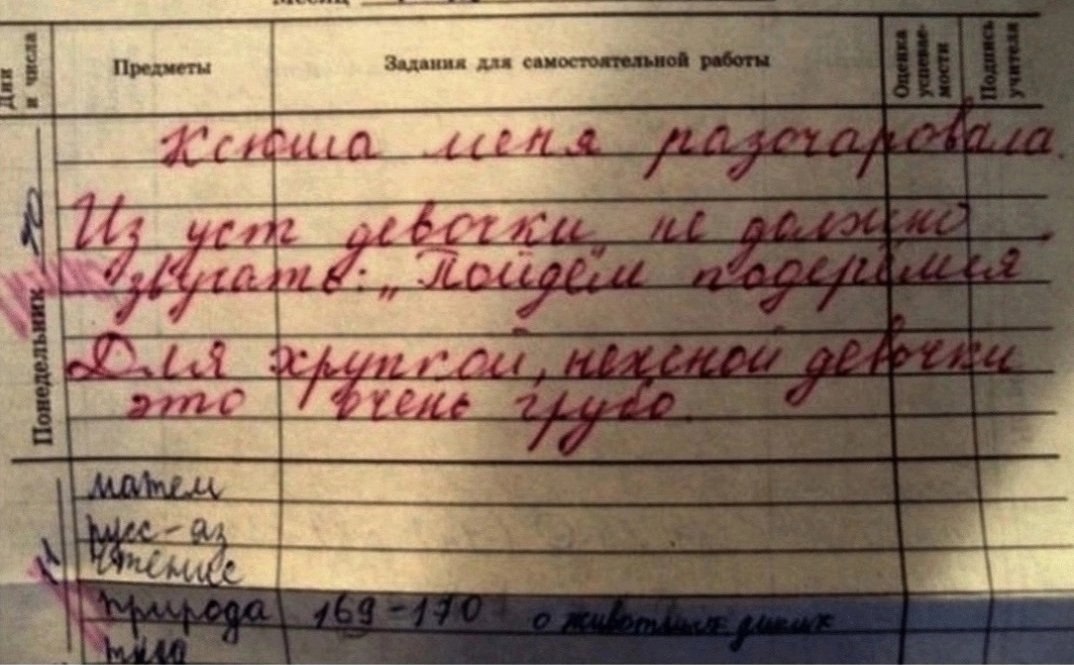 Месяц
Дни и числа
Предметы
Задания для самостоятельной работы
Оценка успевае-мости
Подпись учителя
Понедельник
10
Ксюша меня разочаровала.
Из уст девочки не должно
звучать: „Пойдём подерёмся
Для хрупкой, нежной девочки
это очень грубо.
11
матем
русс-яз
Чтение
природа 169-170 о животных диких